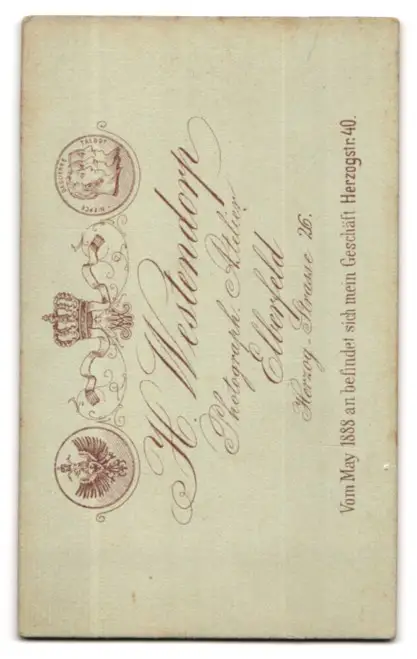 NIEPCE DAGUERRE TALBOT
H. Westendorp
Photograph. Atelier
Elberfeld
Herzog-Strasse 26.
Vom May 1888 an befindet sich mein Geschäft Herzogstr. 40.